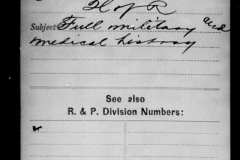 H of R
Subject Full military and
medical history
See also
R. & P. Division Numbers: